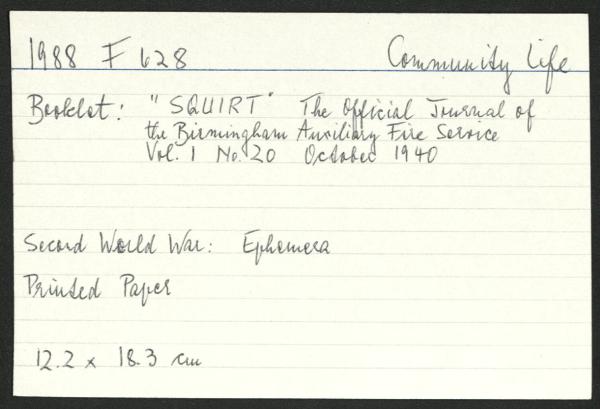 1988 F 628 Community Life
Booklet: "SQUIRT" The Official Journal of
the Birmingham Auxiliary Fire Service
Vol. 1 No. 20 October 1940
Second World War: Ephemera
Printed Paper
12.2 x 18.3 cm